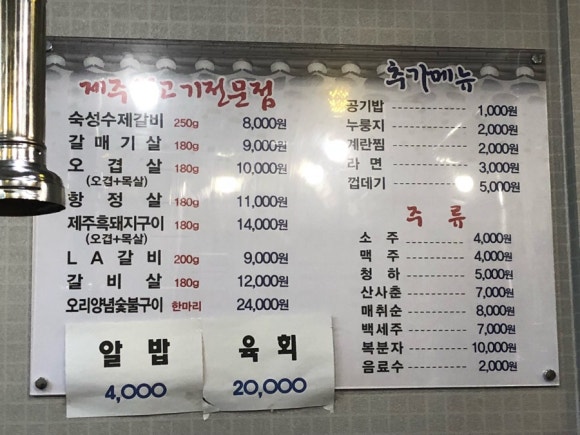 제주 고기전문점
숙성수제갈비 250g 8,000원
갈매기살 180g 9,000원
오겹살 180g 10,000원
(오겹+목살)
항정살 180g 11,000원
제주흑돼지구이 180g 14,000원
(오겹+목살)
LA갈비 200g 9,000원
갈비살 180g 12,000원
오리양념숯불구이 한마리 24,000원
알밥
4,000
육회
20,000
추가메뉴
공기밥 1,000원
누룽지 2,000원
계란찜 2,000원
라면 3,000원
껍데기 5,000원
주류
소주 4,000원
맥주 4,000원
청하 5,000원
산사춘 7,000원
매취순 8,000원
백세주 7,000원
복분자 10,000원
음료수 2,000원